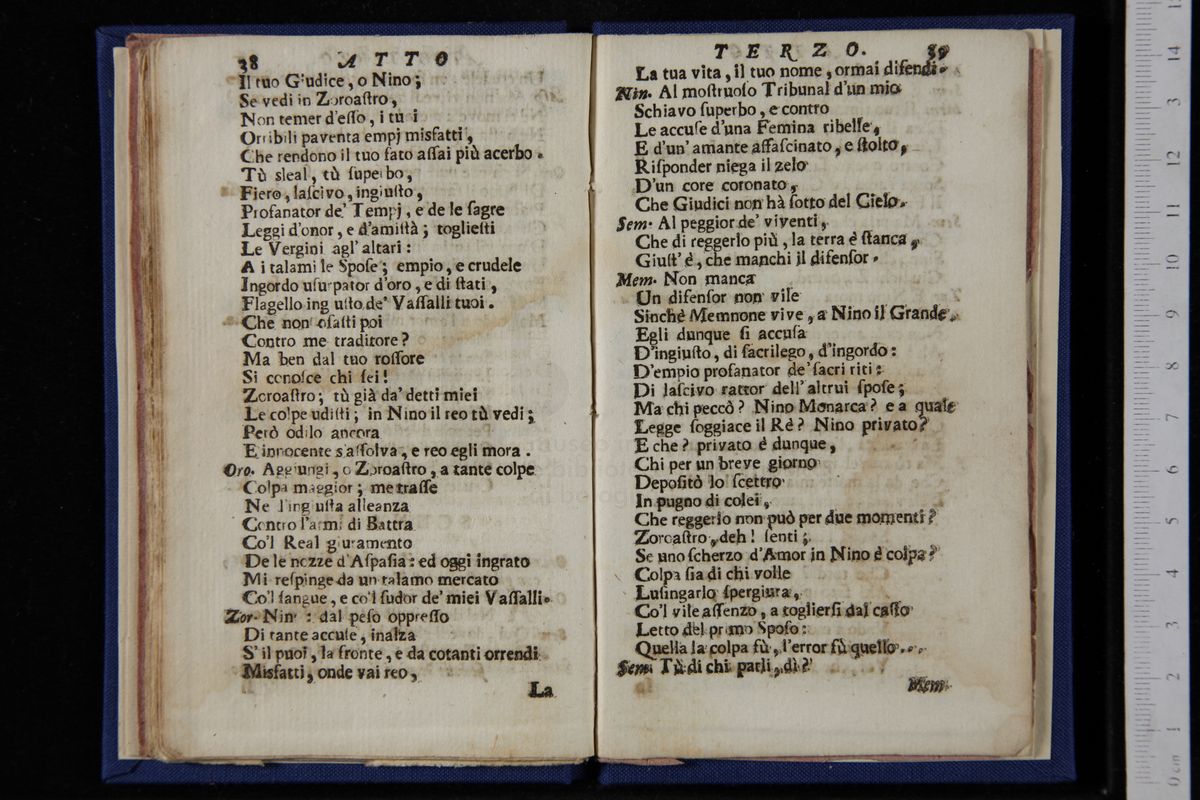 38 ATTO
Il tuo Giudice, o Nino;
Se vedi in Zoroaſtro,
Non temer d'eſſo, i tuoi
Orribili paventa empj misfatti,
Che rendono il tuo fato aſſai più acerbo.
Tù sleal, tù ſuperbo,
Fiero, laſcivo, ingiuſto,
Profanator de' Tempj, e de le ſagre
Leggi d'onor, e d'amiſtà; toglieſti
Le Vergini agl' altari:
A i talami le Spoſe; empio, e crudele
Ingordo uſurpator d'oro, e di ſtati,
Flagello ingiuſto de' Vaſſalli tuoi.
Che non oſaſti poi
Contro me traditore?
Ma ben dal tuo roſſore
Si conoſce chi ſei!
Zoroaſtro; tù già da' detti miei
Le colpe udiſti; in Nino il reo tù vedi;
Però odilo ancora
E innocente s'aſſolva, e reo egli mora.
Oro. Aggiungi, o Zoroaſtro, a tante colpe
Colpa maggior; me traſſe
Ne l'ingiuſta alleanza
Contro l'armi di Battra
Co'l Real giuramento
De le nozze d'Aſpaſia: ed oggi ingrato
Mi reſpinge da un talamo mercato
Co'l ſangue, e co'l ſudor de' miei Vaſſalli.
Zor. Nino: dal peſo oppreſſo
Di tante accuſe, inalza
S' il puoi, la fronte, e da cotanti orrendi
Misfatti, onde vai reo,
La
TERZO. 39
La tua vita, il tuo nome, ormai difendi.
Nin. Al moſtruoſo Tribunal d'un mio
Schiavo ſuperbo, e contro
Le accuſe d'una Femina ribelle,
E d'un' amante affaſcinato, e ſtolto,
Riſponder niega il zelo
D'un core coronato,
Che Giudici non hà ſotto del Cielo.
Sem. Al peggior de' viventi,
Che di reggerlo più, la terra è ſtanca,
Giuſt' è, che manchi il difenſor.
Mem. Non manca
Un difenſor non vile
Sinchè Memnone vive, a Nino il Grande.
Egli dunque ſi accuſa
D'ingiuſto, di ſacrilego, d'ingordo:
D'empio profanator de' ſacri riti:
Di laſcivo rattor dell' altrui ſpoſe;
Ma chi peccò? Nino Monarca? e a quale
Legge ſoggiace il Rè? Nino privato?
E che? privato è dunque,
Chi per un breve giorno
Depoſitò lo ſcettro
In pugno di colei,
Che reggerlo non può per due momenti?
Zoroaſtro, deh! ſenti;
Se uno ſcherzo d'Amor in Nino è colpa?
Colpa ſia di chi volle
Luſingarlo ſpergiura,
Co'l vile aſſenzo, a toglierſi dal caſto
Letto del primo Spoſo:
Quella la colpa fù, l'error fù quello...
Sem. Tù di chi parli, dì?
Mem.